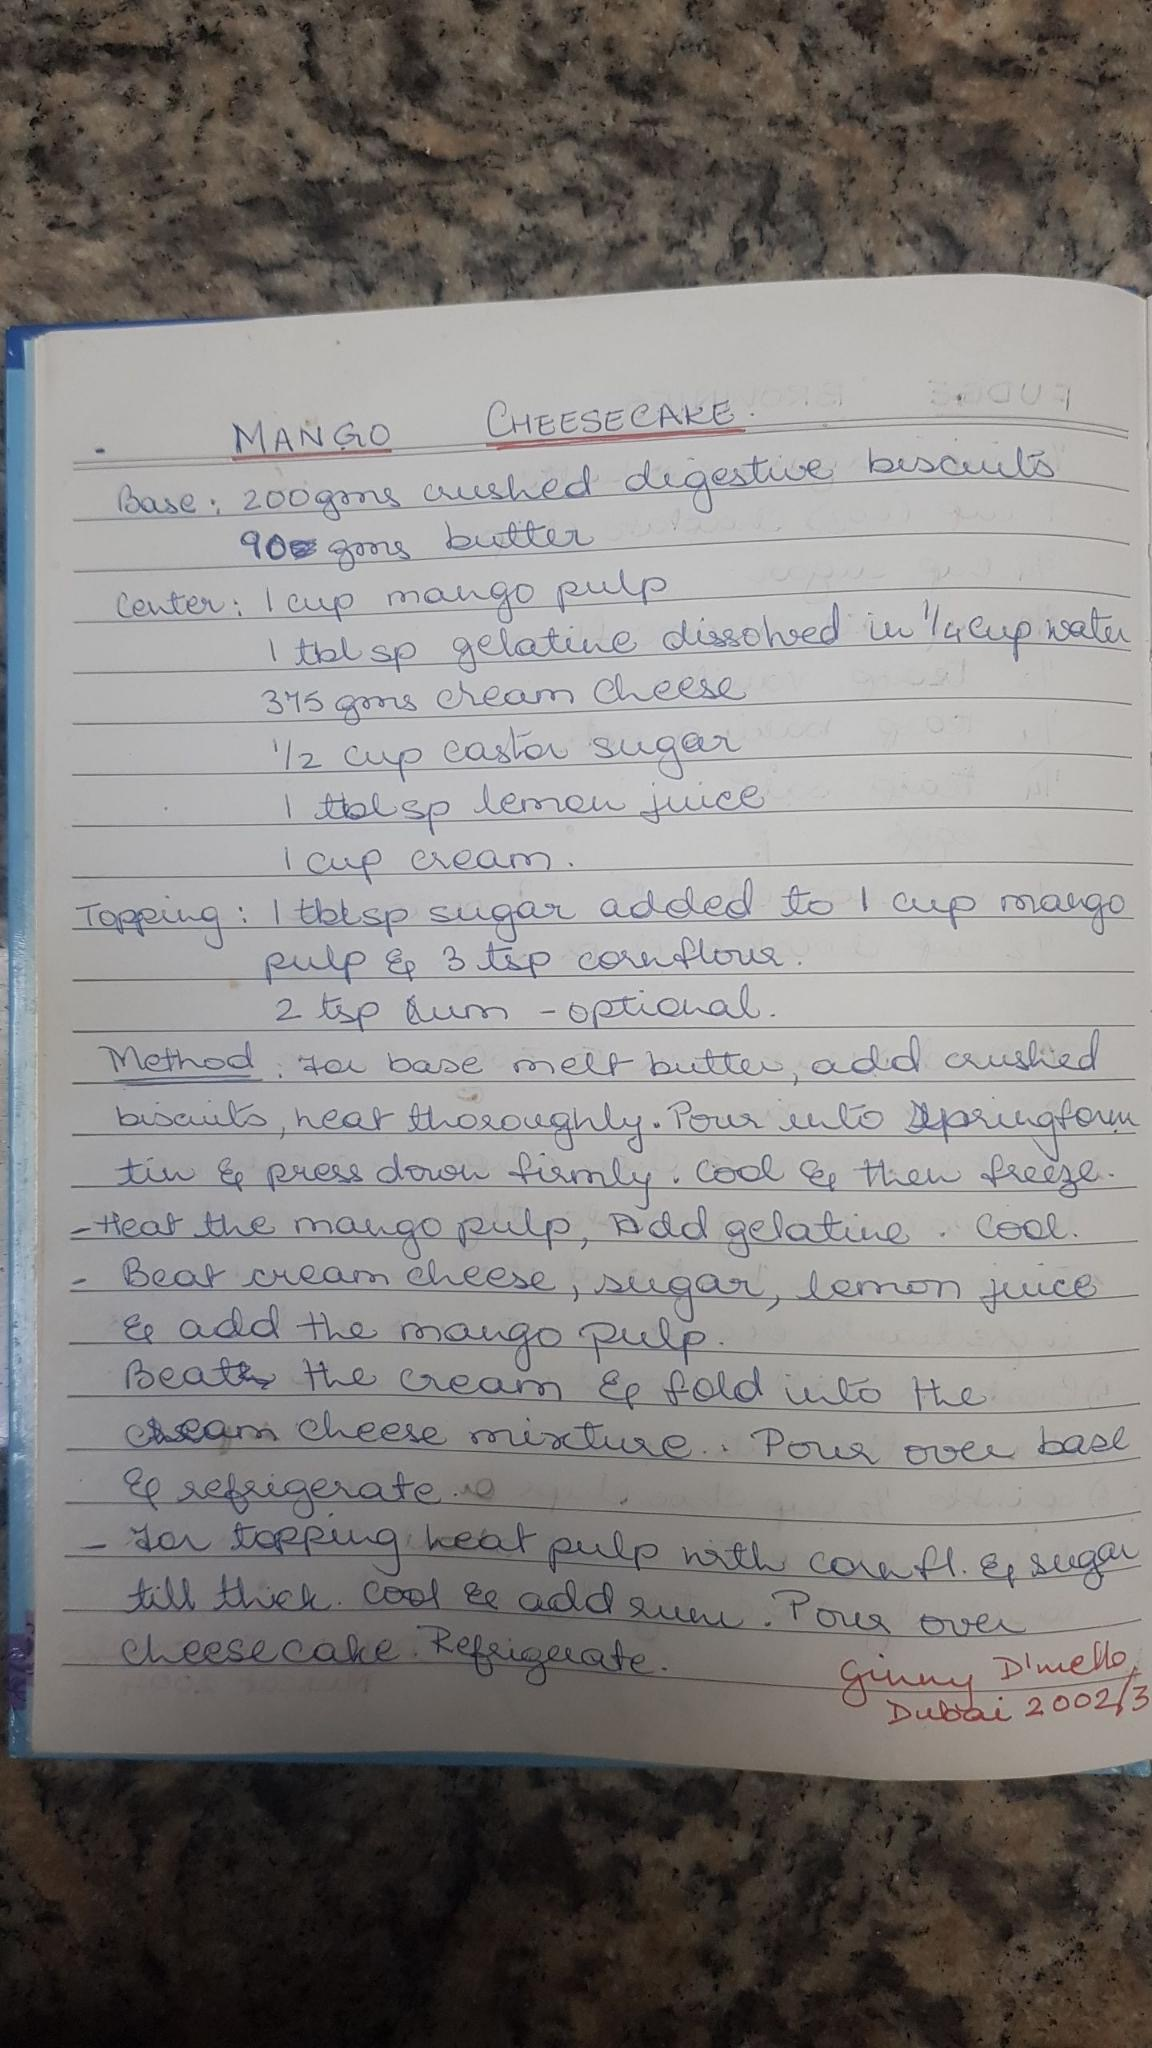 MANGO CHEESECAKE.
Base: 200gms crushed digestive biscuits
90 gms butter
Center: 1 cup mango pulp
1 tblsp gelatine dissolved in 1/4 cup water
375 gms cream cheese
1/2 cup castor sugar
1 tblsp lemon juice
1 cup cream.
Topping: 1 tblsp sugar added to 1 cup mango
pulp & 3 tsp cornflour.
2 tsp rum - optional.
Method: For base melt butter, add crushed
biscuits, heat thoroughly. Pour into Springform
tin & press down firmly. Cool & then freeze.
- Heat the mango pulp, Add gelatine. Cool.
- Beat cream cheese, sugar, lemon juice
& add the mango pulp.
Beat the cream & fold into the
cream cheese mixture. Pour over base
& refrigerate.
- For topping heat pulp with cornfl. & sugar
till thick. Cool & add rum. Pour over
cheesecake. Refrigerate.
Ginny D'mello
Dubai 2002/3